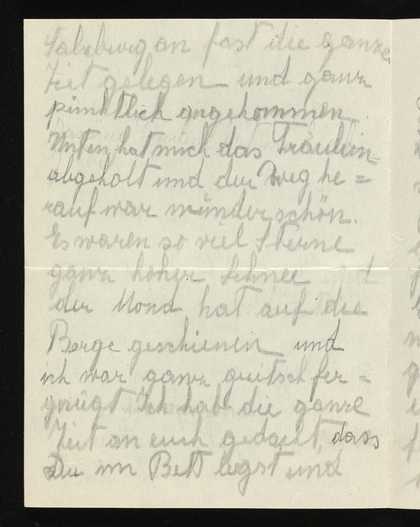 Salzburg an fast die ganze
Zeit gelegen und ganz
pünktlich angekommen.
Unten hat mich das Fräulein
abgeholt und der Weg he=
rauf war wunderschön.
Es waren so viel Sterne
ganz hoher Schnee und
der Mond hat auf die
Berge geschienen und
ich war ganz quitschfer=
gnügt Ich hab die ganze
Zeit an euch gedacht, dass
Du im Bett liegst und